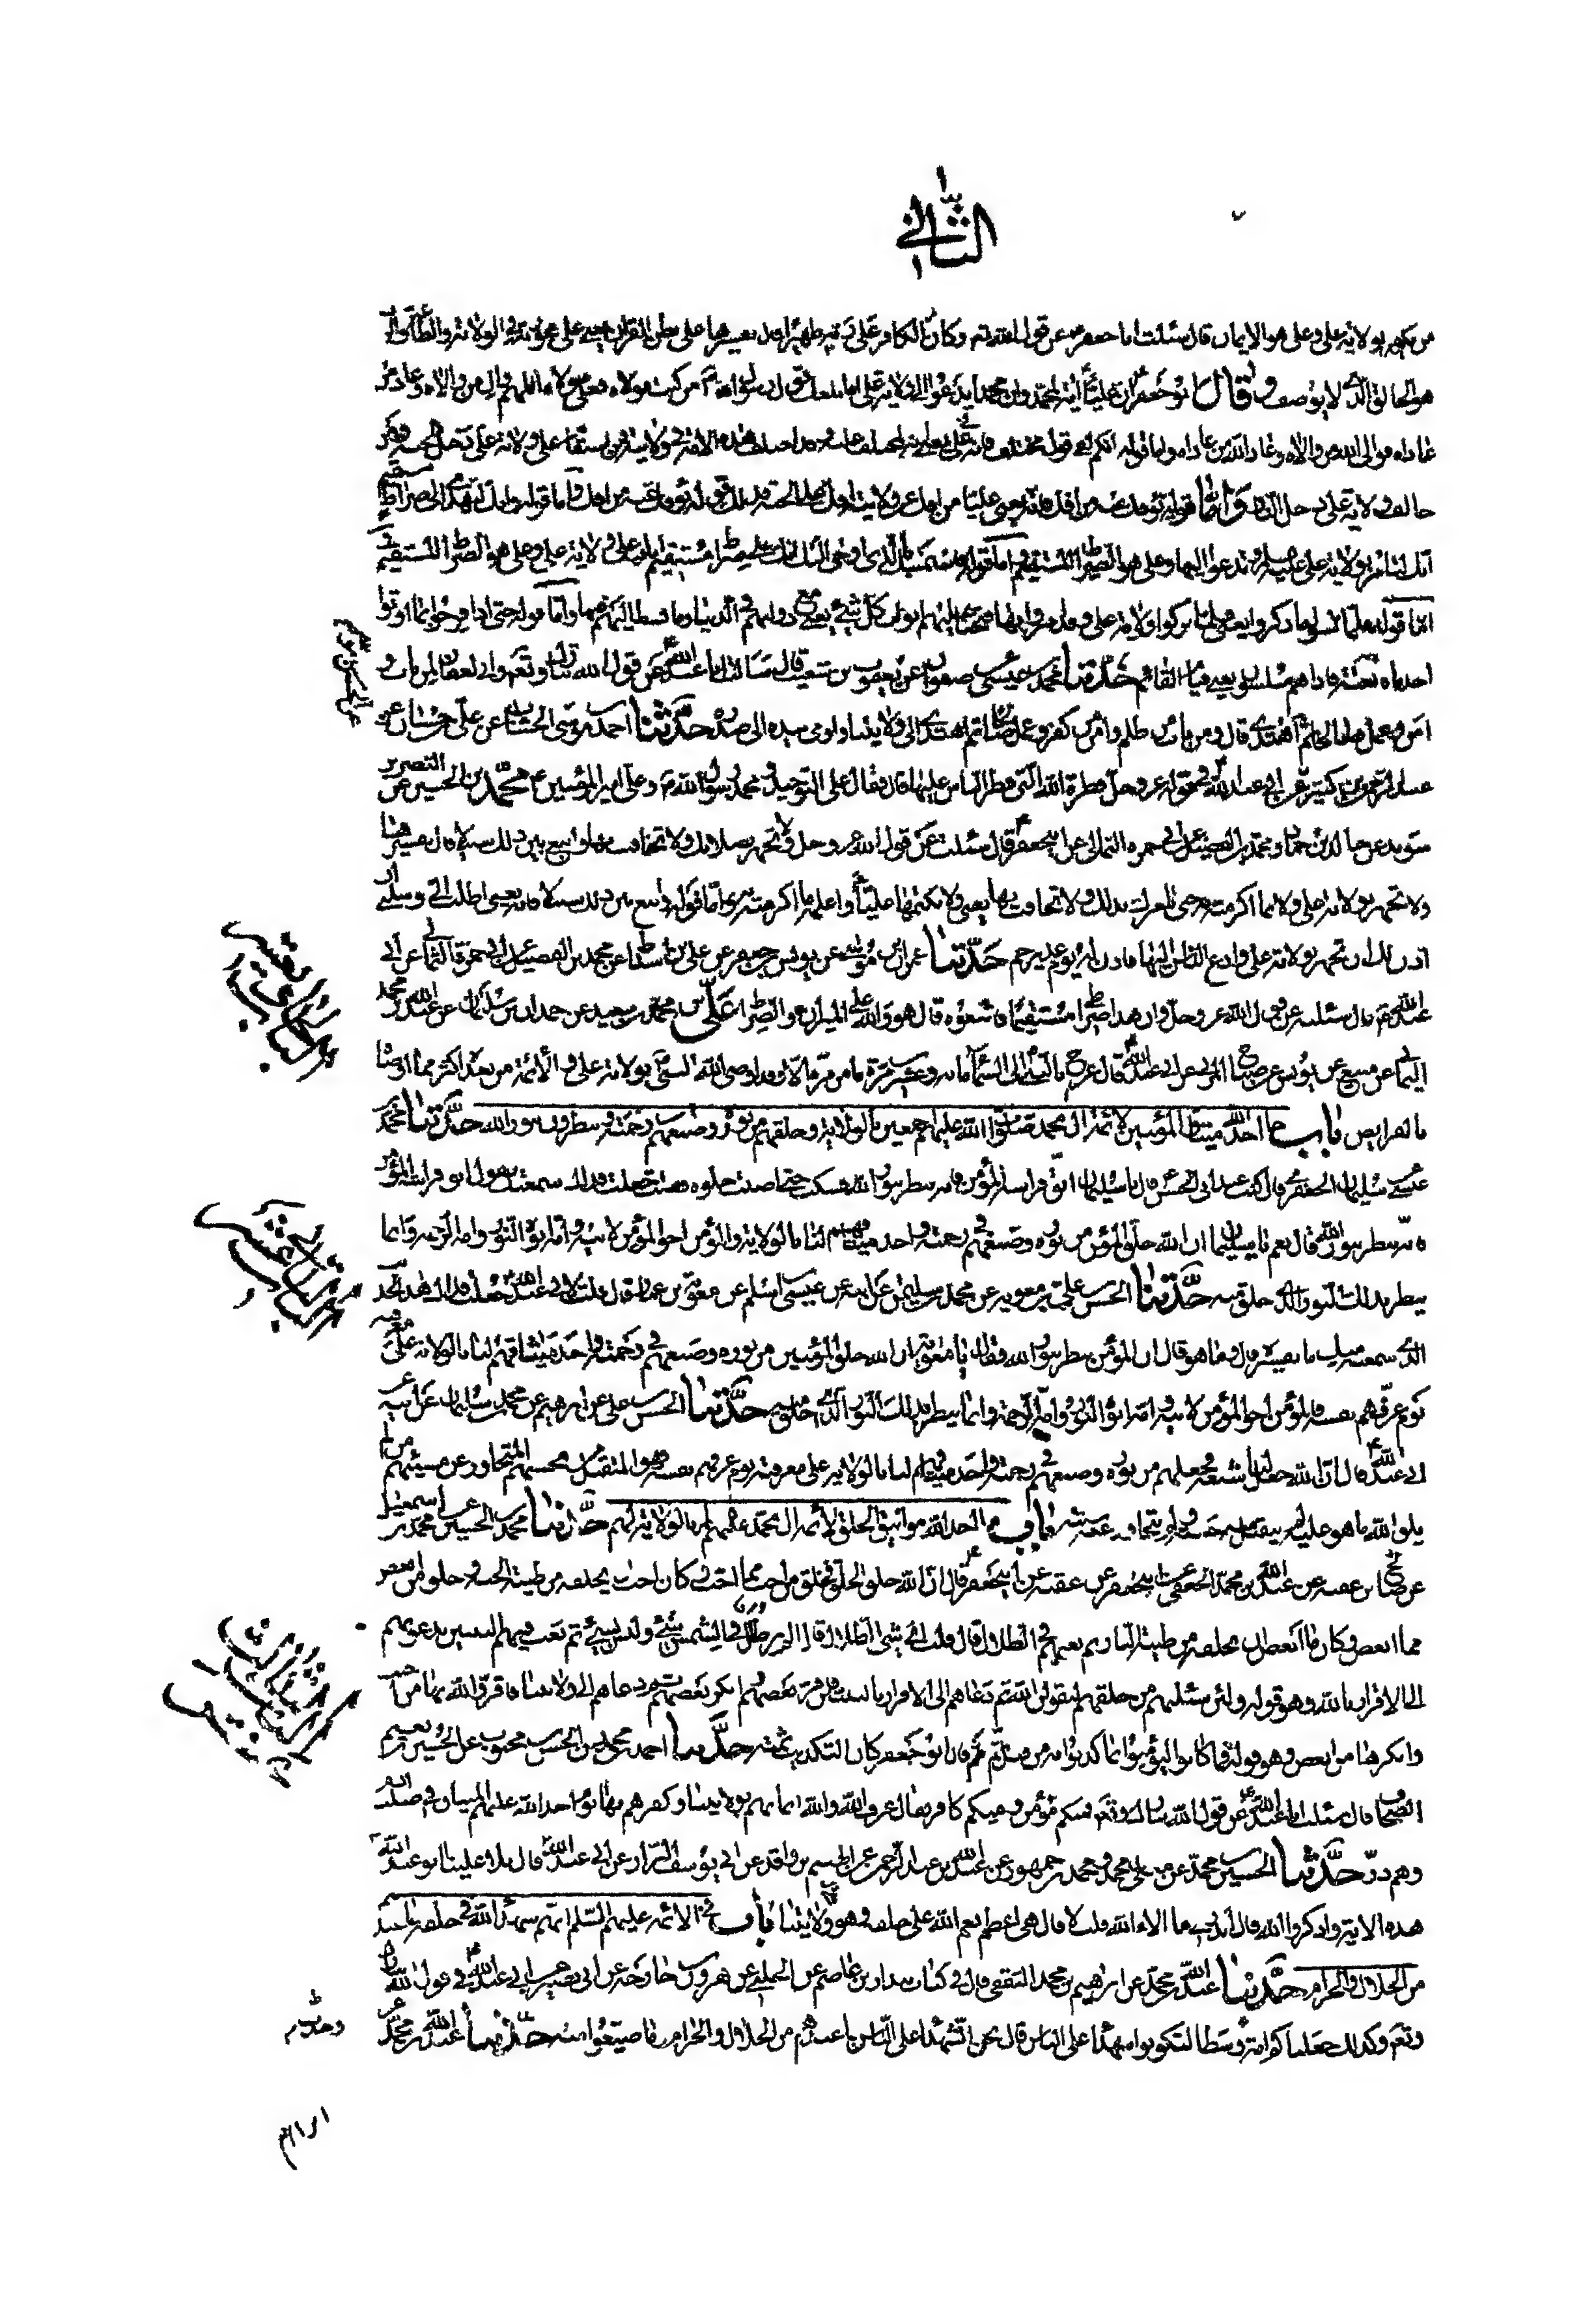 الثاني
من يكفر بولاية علي وعلي هو الايمان قال سئلت ابا جعفر عن قول الله تم وكان الكافر على ربه ظهيرا قال تفسيرها على بطن القران يعني علي هو ربه في الولاية والطاعة والرب
هو الخالق الذي لا يوصف وقال ابو جعفر ان عليا اية لمحمد وان محمدا يدعو الى ولاية علي اما بلغك قول رسول الله من كنت مولاه فعلي مولاه اللهم وال من والاه وعاد من
عاداه فوالى الله من والاه وعاد الله من عاداه واما قوله انكم لفي قول مختلف فانه علي يعني انه لمختلف عليه وقد اختلف هذه الامة في ولايته فمن استقام على ولاية علي دخل الجنة ومن
خالف ولاية علي دخل النار واما قوله يؤفك عنه من افك فانه يعني عليا من افك عن ولايته افك على الجنة فذلك قوله يؤفك عنه من افك واما قوله وانك لتهدي الى صراط مستقيم
انك لتامر بولاية علي وتدعو اليها وعلي هو الصراط المستقيم واما قوله فاستمسك بالذي اوحي اليك انك على صراط مستقيم انك على ولاية علي وعلي هو الصراط المستقيم
اما قوله فلما نسوا ما ذكروا به يعني فلما تركوا ولاية علي وقد امروا بها فتحنا عليهم ابواب كل شيء يعني مع دولتهم في الدنيا وما بسط اليهم فيها واما قوله حتى اذا فرحوا بما اوتوا
اخذناهم بغتة فاذا هم مبلسون يعني قيام القائم حدثنا محمد بن عيسى عن صفوان عن يعقوب بن شعيب قال سالت ابا عبد الله عن قول الله تبارك وتعم واني لغفار لمن تاب و
امن وعمل صالحا ثم اهتدى قال ومن تاب من ظلم وامن من كفر وعمل صالحا ثم اهتدى الى ولايتنا واومى بيده الى صدره حدثنا احمد بن موسى الخشاب عن علي بن حسان عن
عبد الرحمن بن كثير عن ابي عبد الله في قوله عز وجل فطرة الله التي فطر الناس عليها قال فقال على التوحيد ومحمد رسول الله وعلي امير المؤمنين محمد بن الحسين عن النضر بن
سويد عن خالد بن حماد ومحمد بن الفضيل عن ابي حمزة الثمالي عن ابي جعفر قال سئلت عن قول الله عز وجل ولا تجهر بصلاتك ولا تخافت بها وابتغ بين ذلك سبيلا قال تفسيرها
ولا تجهر بولاية علي ولا بما اكرمته به حتى امرك بذلك ولا تخافت بها يعني ولا تكتمها عليا واعلمه ما اكرمته به واما قوله وابتغ بين ذلك سبيلا فانه يعني اطلب الي وسلني ان
اذن لك ان تجهر بولاية علي وادع الناس اليها فاذن له يوم غدير خم حدثنا عمران بن موسى عن يونس بن جعفر عن علي بن اسباط عن محمد بن الفضيل عن ابي حمزة الثمالي عن ابي
عبد الله قال سئلته عن قول الله عز وجل وان هذا صراطي مستقيما فاتبعوه قال هو والله علي الميزان والصراط علي بن محمد بن سعيد عن حمدان بن سليمان عن عبد الله بن محمد
اليماني عن منيع عن يونس عن صباح المزني عن ابي عبد الله قال عرج بالنبي الى السماء مائة وعشرين مرة ما من مرة الا وقد اوصى الله النبي بولاية علي والأئمة من بعده اكثر مما اوصاه
بالفرايض باب ما اخذ الله ميثاق المؤمنين لائمة ال محمد صلوات الله عليهم اجمعين بالولاية وخلقهم من نوره وصبغهم في رحمته وينظرون بنور الله حدثنا محمد بن
عيسى عن سليمان الجعفري قال كنت عند ابي الحسن قال يا سليمان اتق فراسة المؤمن فانه ينظر بنور الله فسكت حتى اصبت خلوة فقلت جعلت فداك سمعتك تقول اتق فراسة المؤمن
فانه ينظر بنور الله قال نعم يا سليمان ان الله خلق المؤمن من نوره وصبغهم في رحمته واخذ ميثاقهم لنا بالولاية والمؤمن اخو المؤمن لابيه وامه ابوه النور وامه الرحمة وانما
ينظر بذلك النور الذي خلق منه حدثنا الحسن بن علي بن معوية عن محمد بن سليمان عن ابيه عن عيسى بن اسلم عن معوية بن عمار قال قلت لابي عبد الله جعلت فداك هذا الحديث
الذي سمعته منك ما تفسيره قال وما هو قال ان المؤمن ينظر بنور الله فقال يا معوية ان الله خلق المؤمنين من نوره وصبغهم في رحمته واخذ ميثاقهم لنا بالولاية على معرفته
يوم عرفهم نفسه فالمؤمن اخو المؤمن لابيه وامه ابوه النور وامه الرحمة وانما ينظر بذلك النور الذي خلق منه حدثنا الحسن بن علي عن ابرهيم عن محمد بن سليمان عن ابيه عن
ابي عبد الله قال ان الله جعل لنا شيعة فجعلهم من نوره وصبغهم في رحمته واخذ ميثاقهم لنا بالولاية على معرفته يوم عرفهم نفسه فهو المتقبل من محسنهم المتجاوز عن مسيئهم من لم
يلق الله ما هو عليه لم يتقبل منه حسنة ولم يتجاوز عنه سيئة باب ما اخذ الله مواثيق الخلق لائمة ال محمد عليهم السلم بالولاية لهم حدثنا محمد بن الحسين عن محمد بن اسمعيل
عن صالح بن عقبة عن عبد الله بن محمد الجعفي عن ابي جعفر وعن عقبة عن ابي جعفر قال ان الله خلق الخلق فخلق من احب مما احب وكان ما احب ان يخلقه من طينة الجنة وخلق من ابغض
مما ابغض وكان ما ابغض ان يخلقه من طينة النار ثم بعثهم في الظلال قال قلت اي شيء الظلال قال الم تر ظلك في الشمس شيء وليس بشيء ثم بعث فيهم النبيين يدعونهم
الى الاقرار بالله وهو قوله ولئن سئلتهم من خلقهم ليقولن الله ثم دعاهم الى الاقرار بالنبيين فاقر بعضهم وانكر بعضهم ثم دعاهم الى ولايتنا فاقر والله بها من احب
وانكرها من ابغض وهو قوله فما كانوا ليؤمنوا بما كذبوا به من قبل ثم قال ابو جعفر كان التكذيب ثمه حدثنا احمد بن محمد عن الحسن بن محبوب عن الحسين بن نعيم
الصحاف قال سئلت ابا عبد الله عن قول الله تبارك وتعم فمنكم مؤمن ومنكم كافر فقال عرف الله والله ايمانهم بولايتنا وكفرهم بها يوم اخذ الله عليهم الميثاق في صلب ادم
وهم ذر حدثنا الحسين بن محمد عن معلى بن محمد ومحمد بن جمهور عن عبد الله بن عبد الرحمن عن الهيثم بن واقد عن ابي يوسف البزاز عن ابي عبد الله قال تلا علينا ابو عبد الله
هذه الاية واذكروا الاء الله قال اتدري ما الاء الله قلت لا قال هي اعظم نعم الله على خلقه وهو ولايتنا باب في الائمة عليهم السلم انهم شهداء لله في خلقه بما عندهم
من الحلال والحرام حدثنا عبد الله بن محمد عن ابراهيم بن محمد الثقفي قال في كتاب بندار بن عاصم عن الحلبي عن هرون بن خارجة عن ابي بصير عن ابي عبد الله في قول الله تبارك
وتعم وكذلك جعلناكم امة وسطا لتكونوا شهداء على الناس قال نحن الشهداء على الناس بما عندهم من الحلال والحرام وما ضيعوا منه حدثنا عبد الله بن محمد عن